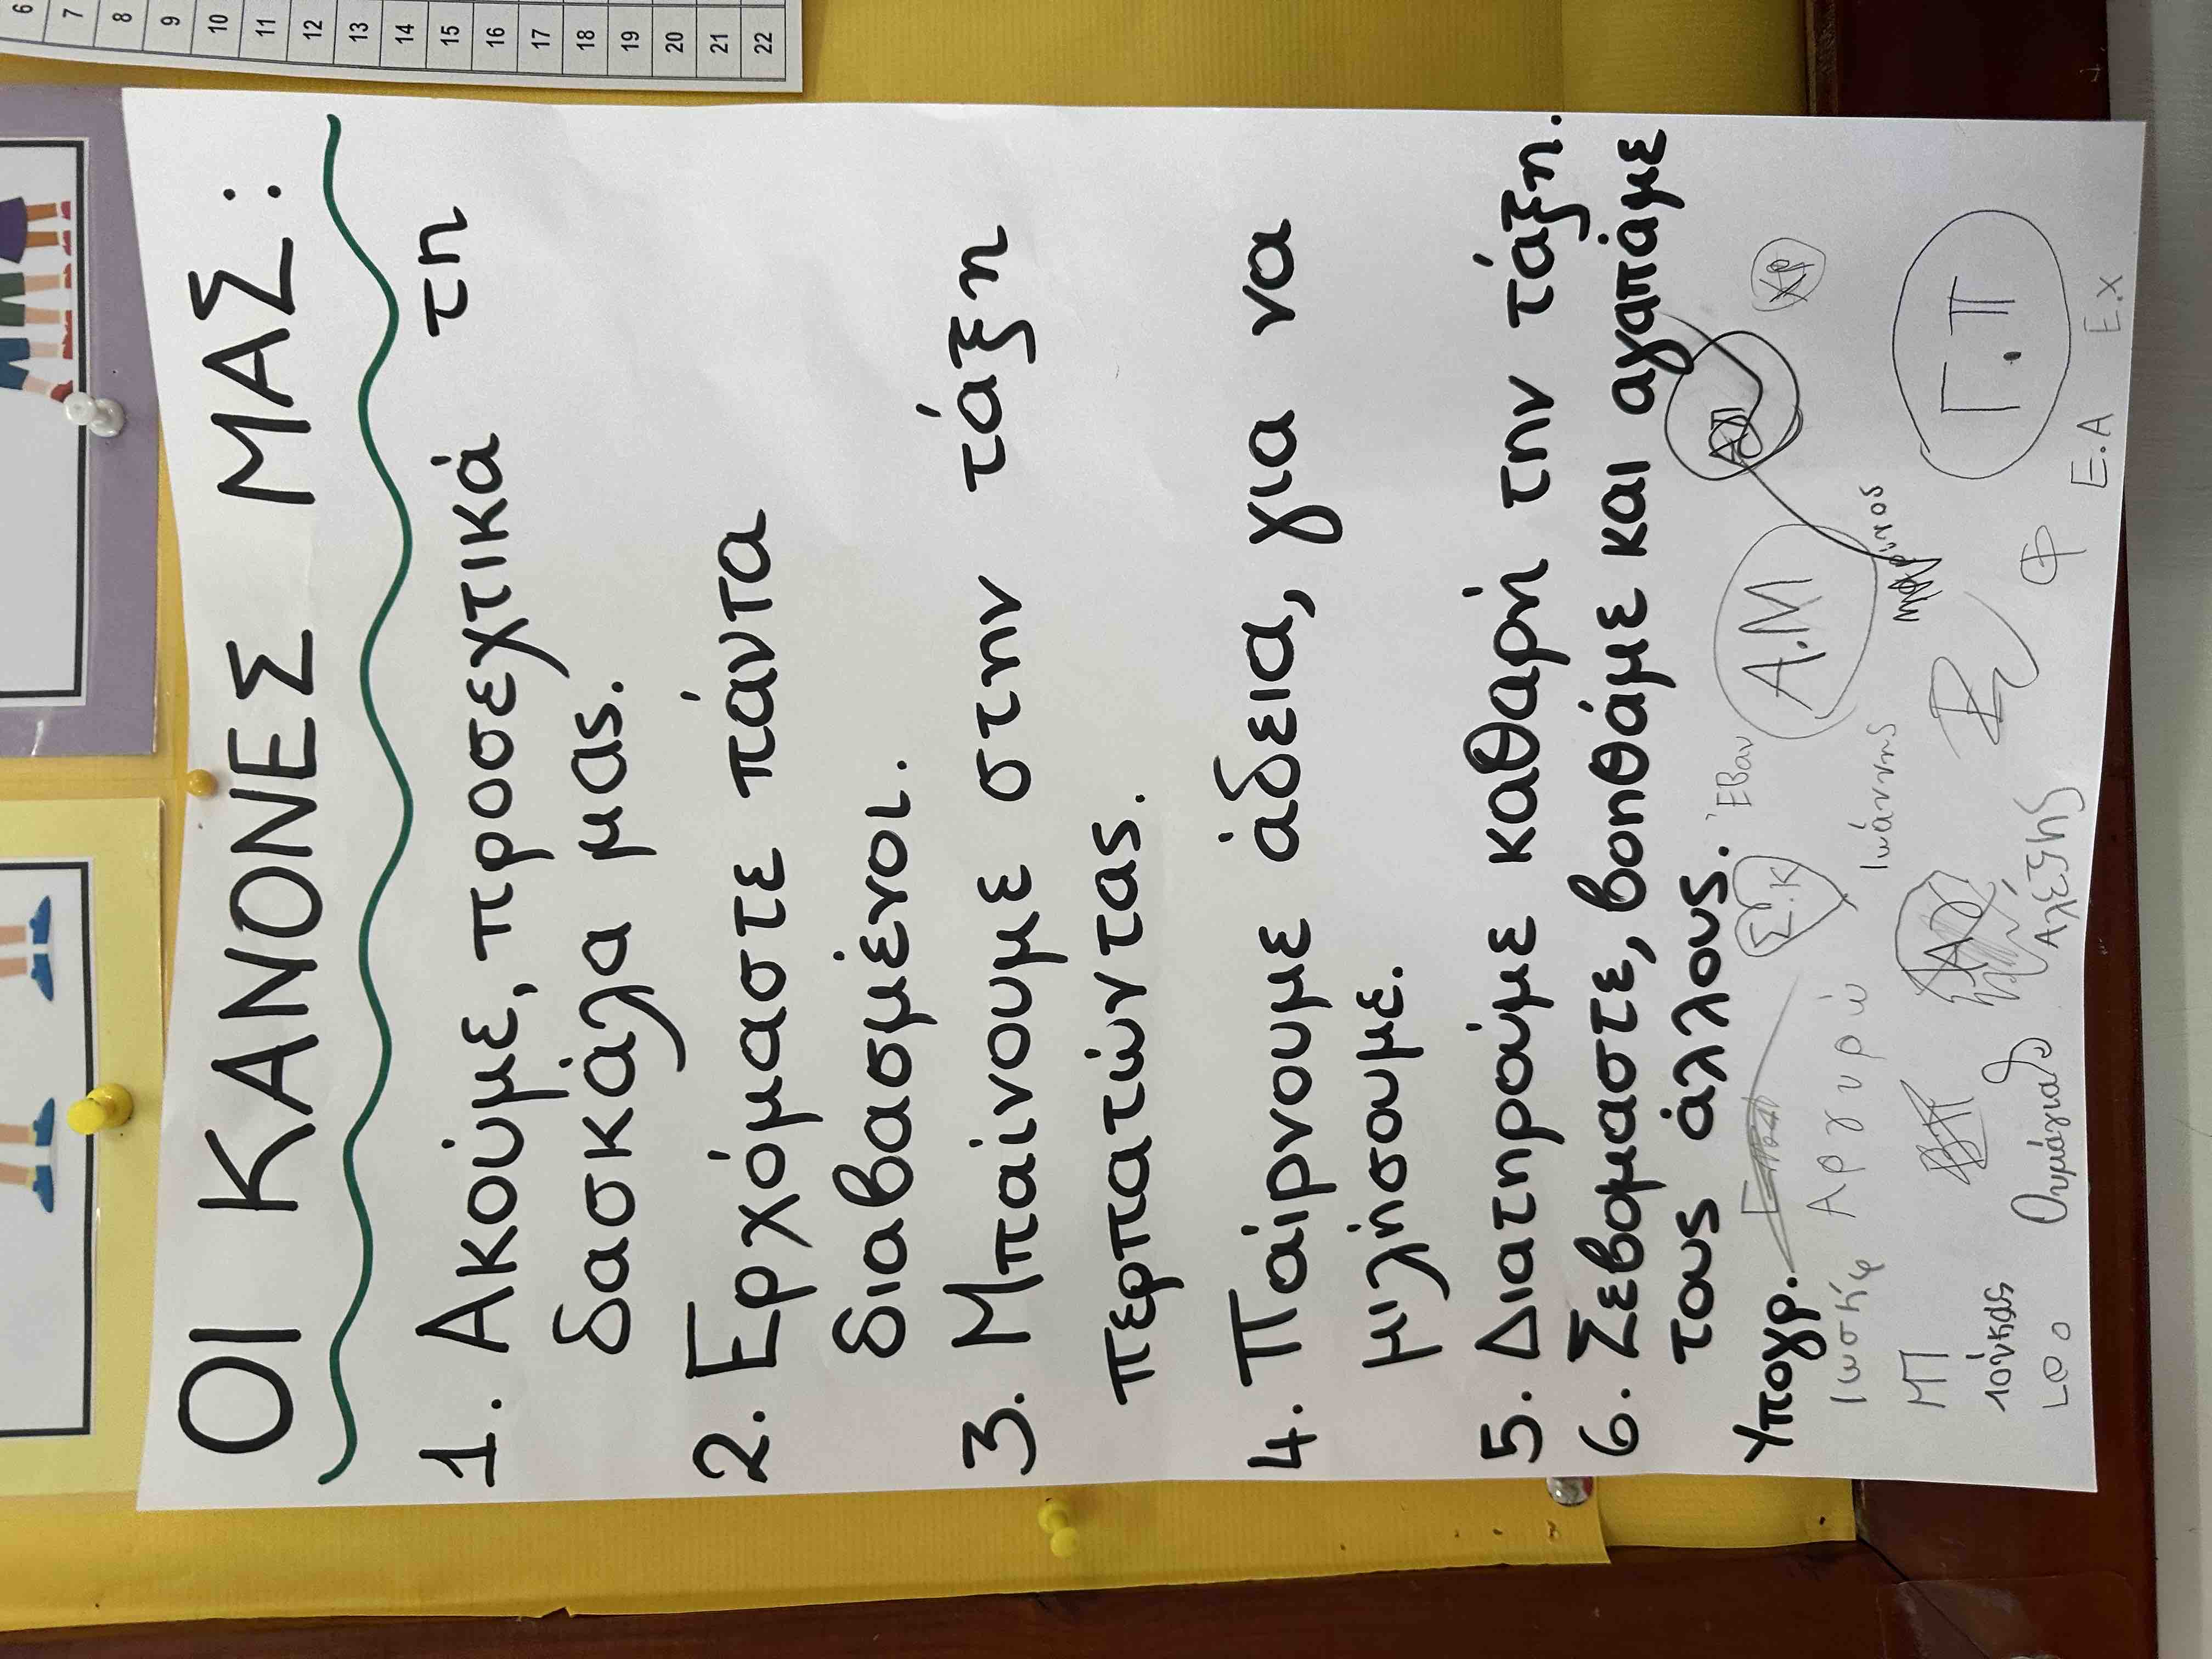 6
7
8
9
10
11
12
13
14
15
16
17
18
19
20
21
22
ΟΙ ΚΑΝΟΝΕΣ ΜΑΣ:
1. Ακούμε, προσεχτικά τη
δασκάλα μας.
2. Ερχόμαστε πάντα
διαβασμένοι.
3. Μπαίνουμε στην τάξη
περπατώντας.
4. Παίρνουμε άδεια, για να
μιλήσουμε.
5. Διατηρούμε καθαρή την τάξη.
6. Σεβόμαστε, βοηθάμε και αγαπάμε
τους άλλους.
Υπογρ. Σ.Κ Έβαν
Ιωσήφ Αργυρώ Ιωάννης Α.Μ
ΜΠ Γ.Π
Αλέξης Φ
Ε.Α Ε.Χ